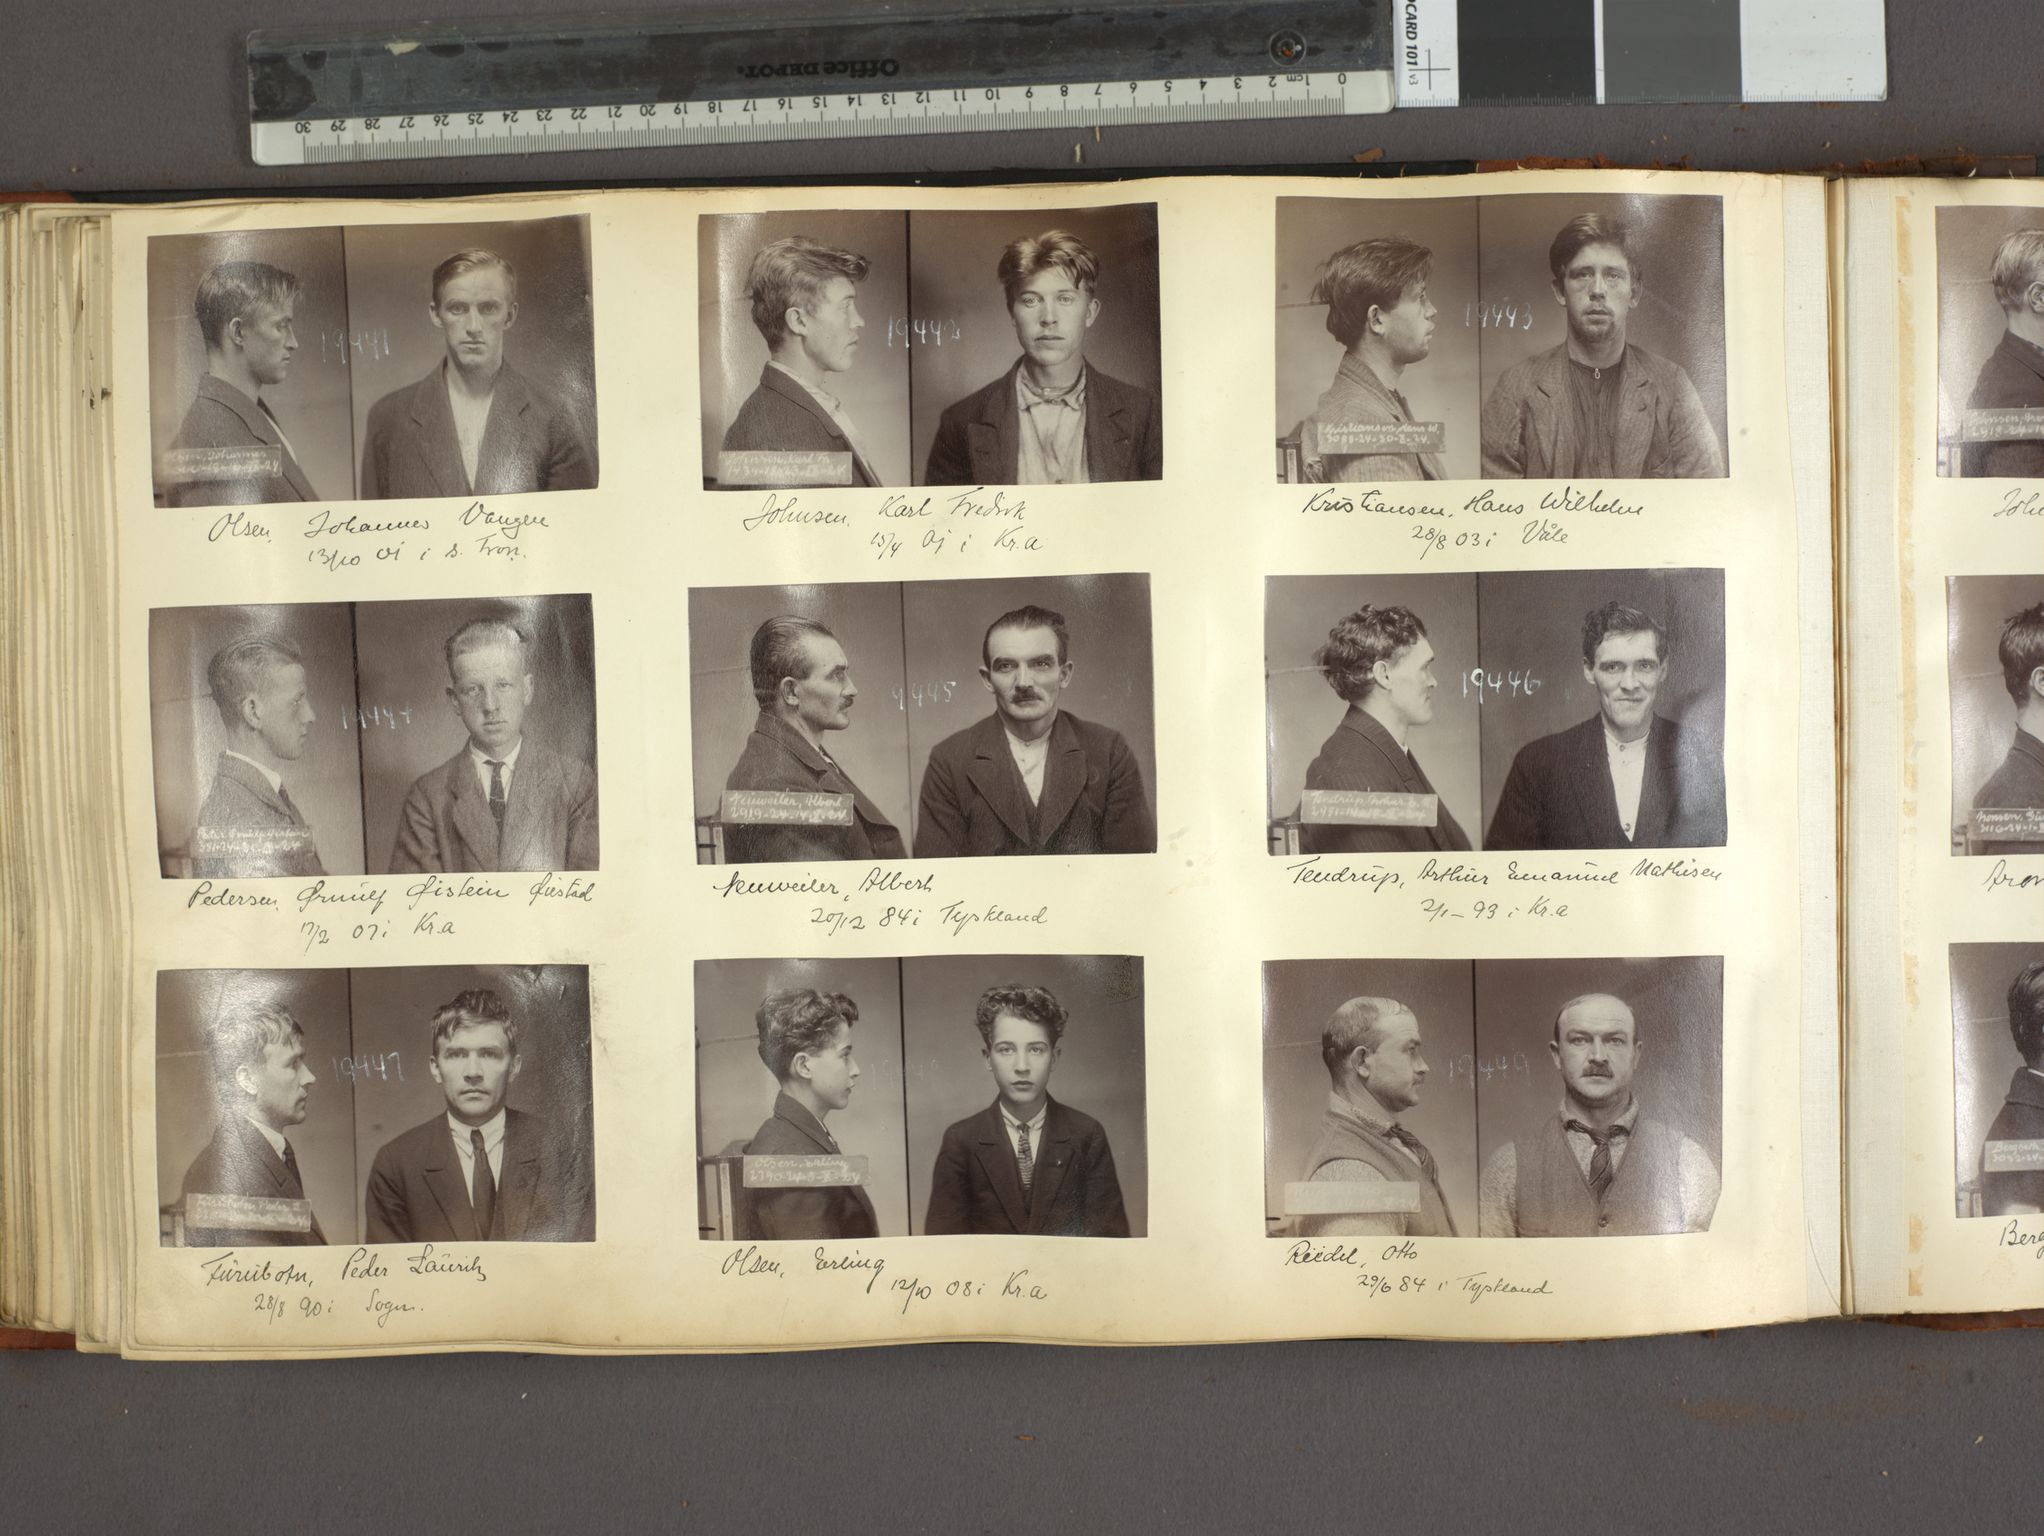 Office DEPOT.
0 1cm 2 3 4 5 6 7 8 9 10 11 12 13 14 15 16 17 18 19 20 21 22 23 24 25 26 27 28 29 30
CARD 101 v3
19441
Olsen, Johannes
Olsen, Johannes Vangen
13/10 01 i S. Fron.
1944
Johnsen, Karl Fredrik
15/4 01 i Kr.a
19443
Kristiansen, Hans W.
3088-24-30-X-24.
Kristiansen, Hans Wilhelm
28/8 03 i Våle
19444
Pedersen, Ørnulf Øistein Øiestad
17/2 07 i Kr.a
9445
Neuweiler, Albert
2919-24-14-X-24.
Neuweiler, Albert
20/12 84 i Tyskland
19446
Tendrup, Arthur E. M.
Tendrup, Arthur Emanuel Mathisen
2/1-93 i Kr.a
19447
Furubotn, Peder L.
Furubotn, Peder Lauritz
28/8 90 i Sogn.
Olsen, Erling
Olsen, Erling
12/10 08 i Kr.a
19449
Riedel, Otto
29/6 84 i Tyskland
Joh
Aronsen,
Aron
Bergsen,
Berg